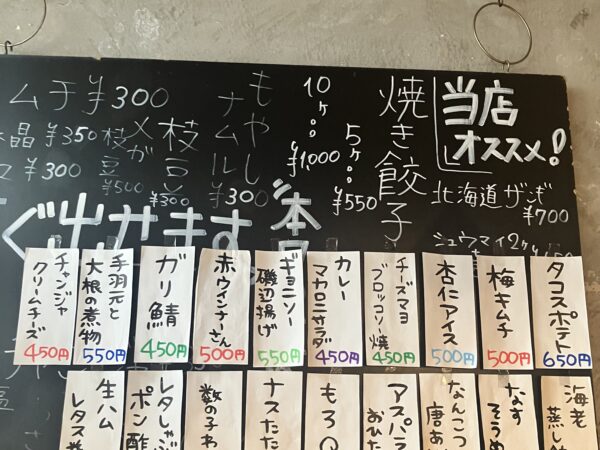 当店
オススメ!
北海道ザンギ
¥700
焼き餃子
5ヶ
¥550
10ヶ
¥1,000
もやし
ナムル
¥300
枝豆
¥300
メガ
枝豆
¥500
ムチ ¥300
晶 ¥350
¥300
ぐ出せます
タコスポテト
650円
梅キムチ
500円
杏仁アイス
500円
チーズマヨ
ブロッコリー焼
450円
カレー
マカロニサラダ
450円
ギョニソー
磯辺揚げ
550円
赤ウインナーさん
500円
ガリ鯖
450円
手羽元と
大根の煮物
550円
チャンジャ
クリームチーズ
450円
海老
蒸し
なす
そうめ
なんこつ
唐あ
アスパラ
おひた
もろQ
ナスたた
数の子わ
レタしゃぶ
ポン酢
生ハム
レタス